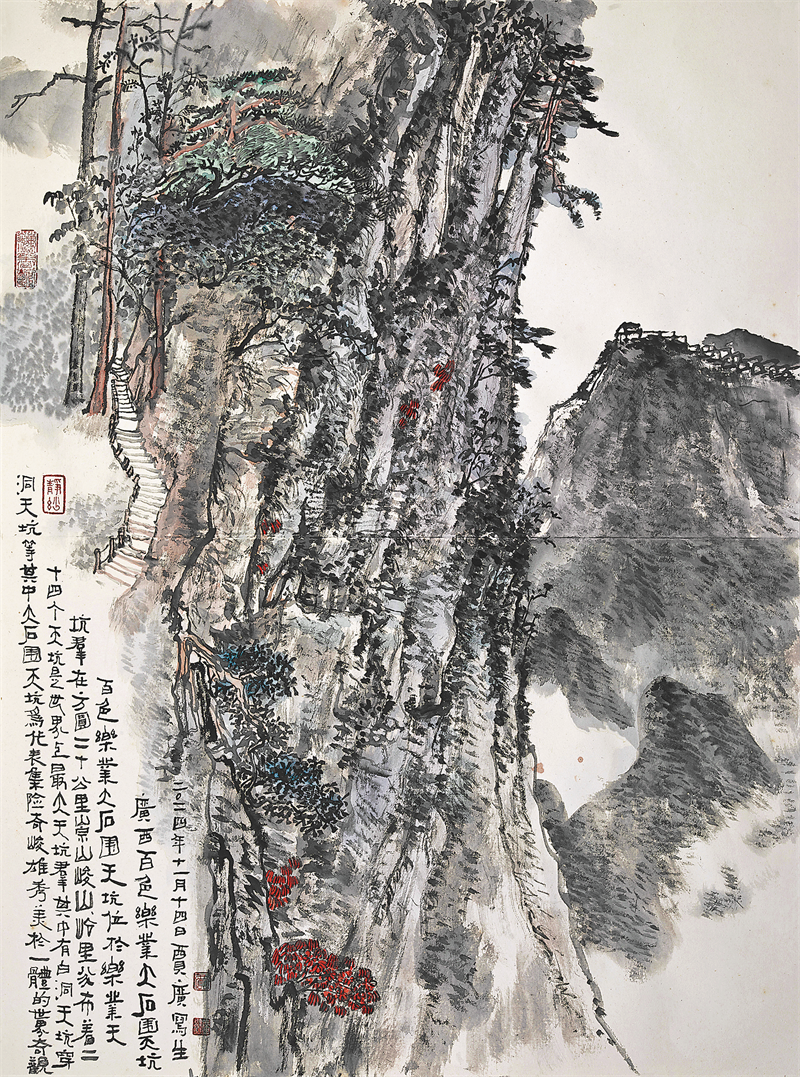 二〇二四年十一月十四日 廣寫生
廣西百色樂業大石圍天坑
百色樂業大石圍天坑位於樂業天
坑羣在方圓二十公里崇山峻岭里分布着二
十四个天坑是世界上最大天坑羣其中有白洞天坑穿
洞天坑等其中大石圍天坑爲代表集险奇峻雄秀美於一體的世界奇觀